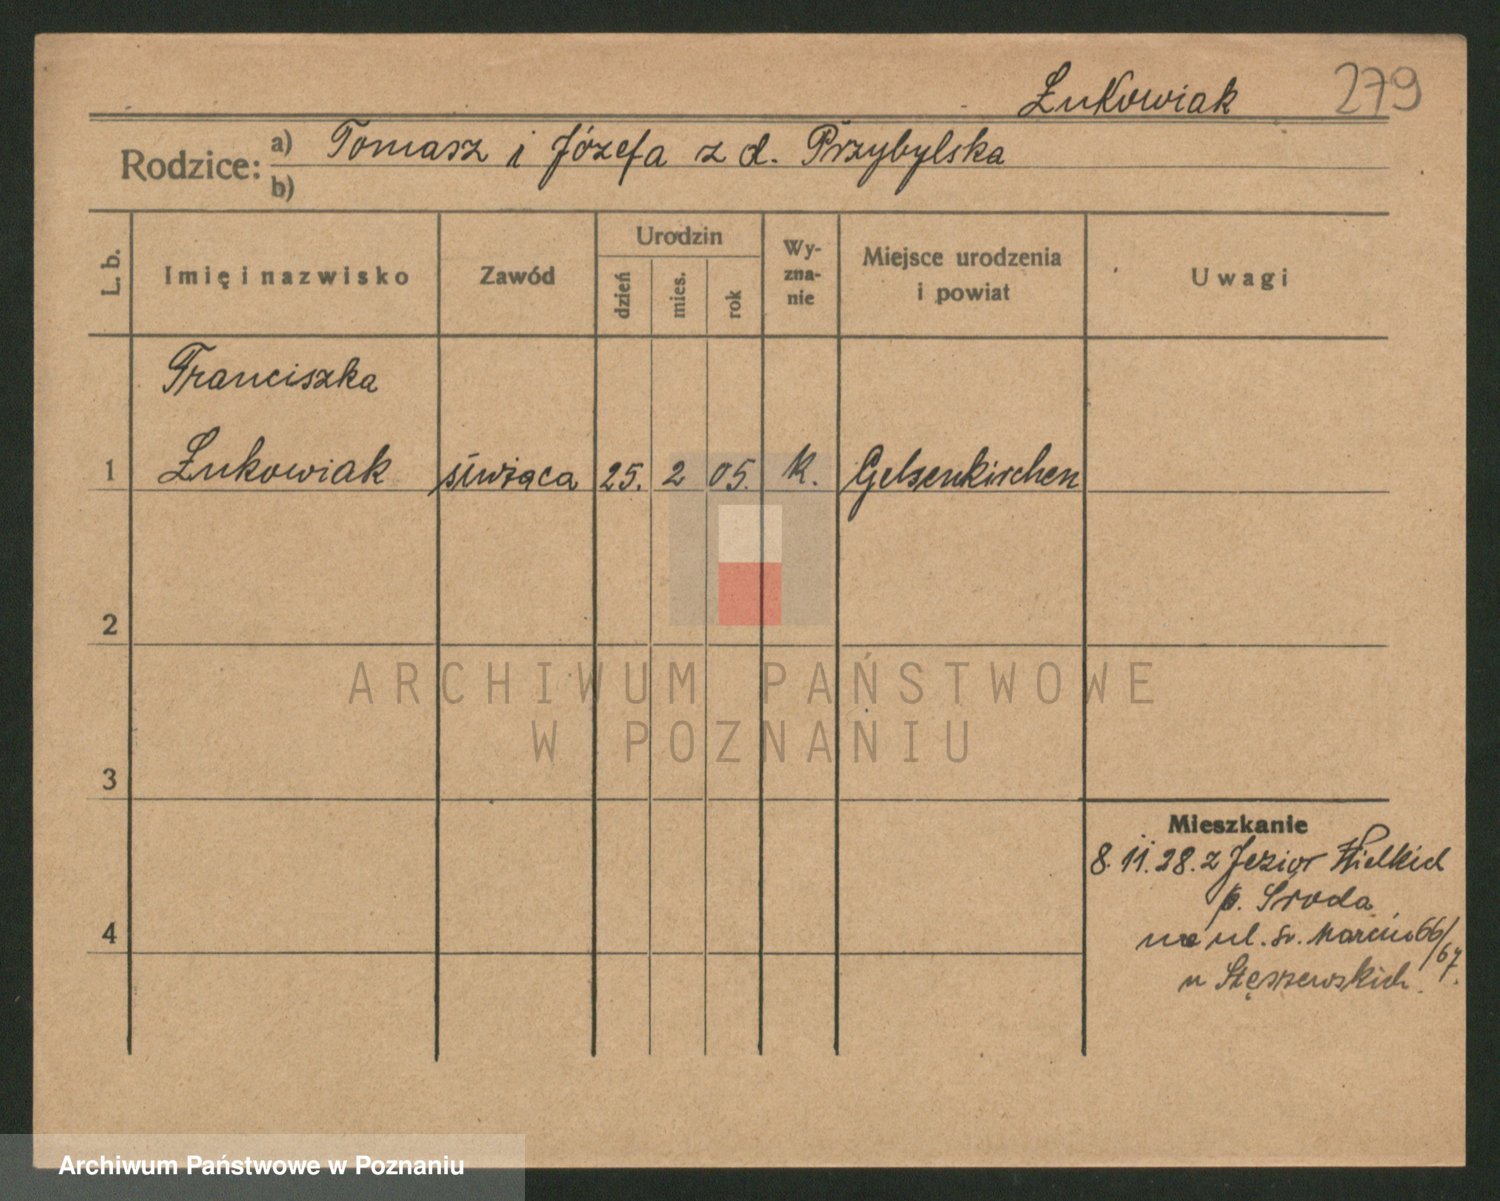 Łukowiak 279
Rodzice: a) Tomasz i Józefa z d. Przybylska
b)
L. b.
Imię i nazwisko
Zawód
Urodzin
dzień
mies.
rok
Wy-
zna-
nie
Miejsce urodzenia
i powiat
Uwagi
Franciszka
1 Łukowiak służąca 25. 2 05. k. Gelsenkirchen
2
ARCHIWUM PAŃSTWOWE
W POZNANIU
3
Mieszkanie
8.11.28. z Jezior Wielkich
p. Środa
4
na ul. św. Marcin 66/67.
u Stęszewskich.
Archiwum Państwowe w Poznaniu